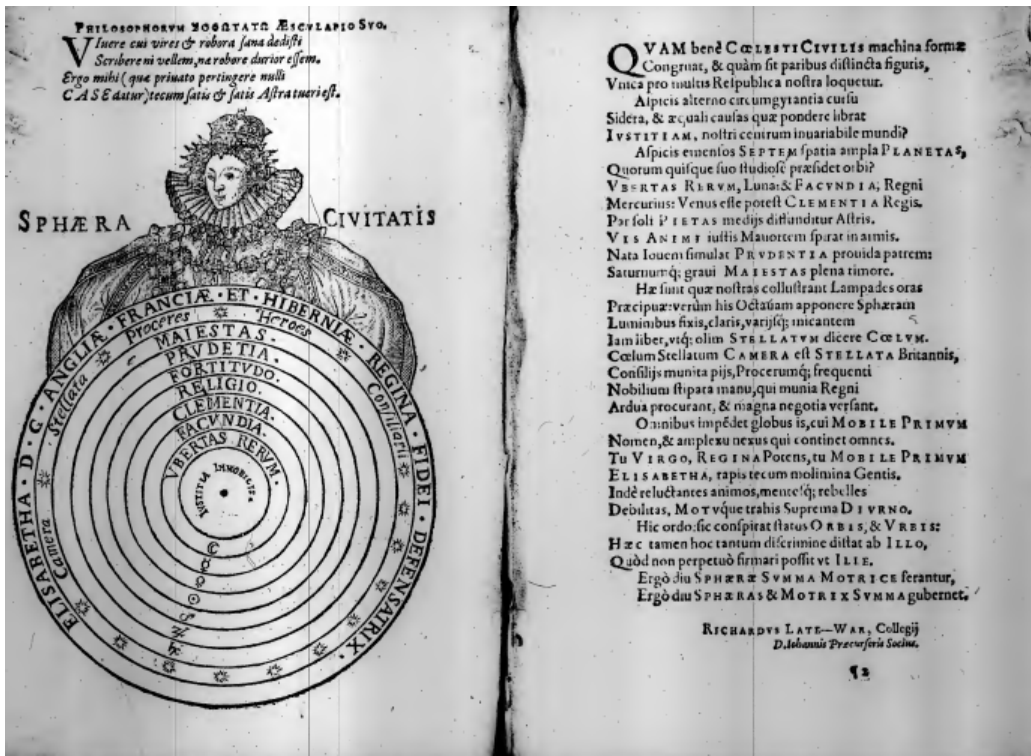 PHILOSOPHORVM ÆSCVLAPIO SVO.
VIuere cui vires & robora sana dedisti
Scribere ni vellem, na robore durior essem.
Ergo mihi (quæ priuato pertingere nulli
CASE datur) tecum satis & satis Astra tueri est.
SPHÆRA CIVITATIS
ELISABETHA · D · G · ANGLIÆ · FRANCIÆ · ET · HIBERNIÆ · REGINA · FIDEI · DEFENSATRIX ·
Camera Stellata Proceres Heroes Consiliarii
MAIESTAS.
PRVDETIA.
FORTITVDO.
RELIGIO.
CLEMENTIA.
FACVNDIA.
VBERTAS RERVM.
IVSTITIA IMMOBILIS
☾
☿
♀
☉
♂
♃
♄
QVAM benè CŒLESTI CIVILIS machina formæ
Congruat, & quàm sit paribus distincta figuris,
Vnica pro multis Respublica nostra loquetur.
Aspicis alterno circumgyrantia cursu
Sidera, & æquali causas quæ pondere librat
IVSTITIAM, nostri centrum inuariabile mundi?
Aspicis emensos SEPTEM spatia ampla PLANETAS,
Quorum quisque suo studiosè præsidet orbi?
VBERTAS RERVM, Lunæ: & FACVNDIA, Regni
Mercurius: Venus esse potest CLEMENTIA Regis.
Par soli PIETAS medijs diffunditur Astris.
VIS ANIMI iustis Mauortem spirat in armis.
Nata Iouem simulat PRVDENTIA prouida patrem:
Saturnumq; graui MAIESTAS plena timore.
Hæ sunt quæ nostras collustrant Lampades oras
Præcipuæ: verùm his Octauam apponere Sphæram
Luminibus fixis, claris, varijsq; micantem
Iam liber, vtq; olim STELLATVM dicere CŒLVM.
Cœlum Stellatum CAMERA est STELLATA Britannis,
Consilijs munita pijs, Procerumq; frequenti
Nobilium stipata manu, qui munia Regni
Ardua procurant, & magna negotia versant.
Omnibus impẽdet globus is, cui MOBILE PRIMVM
Nomen, & amplexu nexus qui continet omnes.
Tu VIRGO, REGINA Potens, tu MOBILE PRIMVM
ELISABETHA, rapis tecum molimina Gentis.
Indè reluctantes animos, mentesq; rebelles
Debilitas, MOTVque trahis Suprema DIVRNO.
Hic ordo: sic conspirat status ORBIS, & VRBIS:
Hæc tamen hoc tantum discrimine distat ab ILLO,
Quòd non perpetuò firmari possit vt ILLE.
Ergò diu SPHÆRÆ SVMMA MOTRICE ferantur,
Ergò diu SPHÆRAS & MOTRIX SVMMA gubernet.
RICHARDVS LATE—WAR, Collegij
D. Iohannis Præcursoris Socius.
¶2